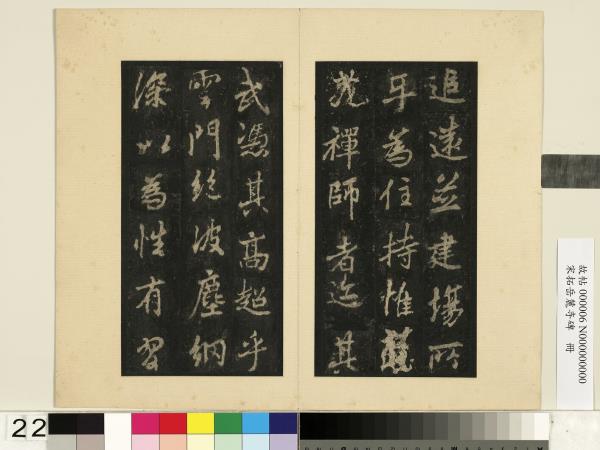 追遠並建場所
㸦為住持惟
禪師者迹其
武憑其高超乎
雲門絕彼塵網
深以為性有習
故帖 000006 N000000000
宋拓岳麓寺碑 冊
22